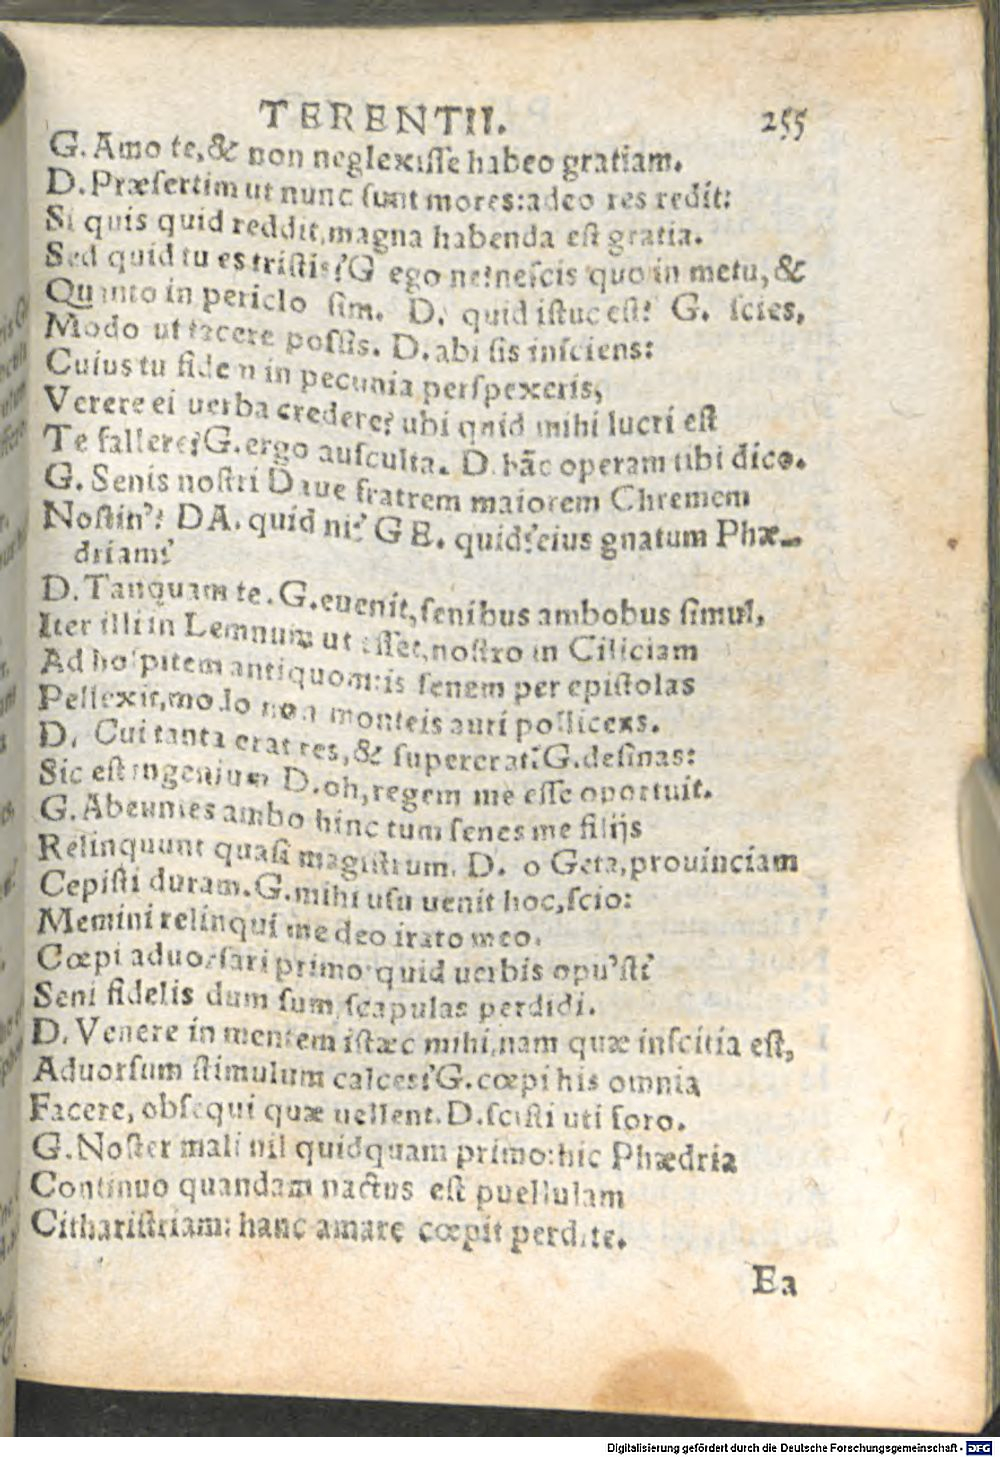 TERENTII. 255
G. Amo te, & non neglexisse habeo gratiam.
D. Præsertim ut nunc sunt mores: adeo res redit:
Si quis quid reddit, magna habenda est gratia.
Sed quid tu es tristis? G ego ne? nescis quo in metu, &
Quanto in periclo sim. D. quid istuc est? G. scies,
Modo ut tacere possis. D. abi sis insciens:
Cuius tu fidem in pecunia perspexeris,
Verere ei uerba credere? ubi quid mihi lucri est
Te fallere? G. ergo ausculta. D. hãc operam tibi dico.
G. Senis nostri Daue fratrem maiorem Chremem
Nostin'? DA. quid ni? GE. quid? eius gnatum Phæ-
driam?
D. Tanquam te. G. euenit, senibus ambobus simul,
Iter illi in Lemnum ut esset, nostro in Ciliciam
Ad hospitem antiquom: is senem per epistolas
Pellexit, modo non monteis auri pollicexs.
D. Cui tanta erat res, & supererat? G. desinas:
Sic est ingenium D. oh, regem me esse oportuit.
G. Abeuntes ambo hinc tum senes me filijs
Relinquunt quasi magistrum. D. o Geta, prouinciam
Cepisti duram. G. mihi usu uenit hoc, scio:
Memini relinqui me deo irato meo.
Cœpi aduorsari primo quid uerbis opu'st?
Seni fidelis dum sum, scapulas perdidi.
D. Venere in mentem istæc mihi, nam quæ inscitia est,
Aduorsum stimulum calces? G. cœpi his omnia
Facere, obsequi quæ uellent. D. scisti uti foro.
G. Noster mali nil quidquam primo: hic Phædria
Continuo quandam nactus est puellulam
Citharistriam: hanc amare cœpit perdite.
Ea
Digitalisierung gefördert durch die Deutsche Forschungsgemeinschaft - DFG